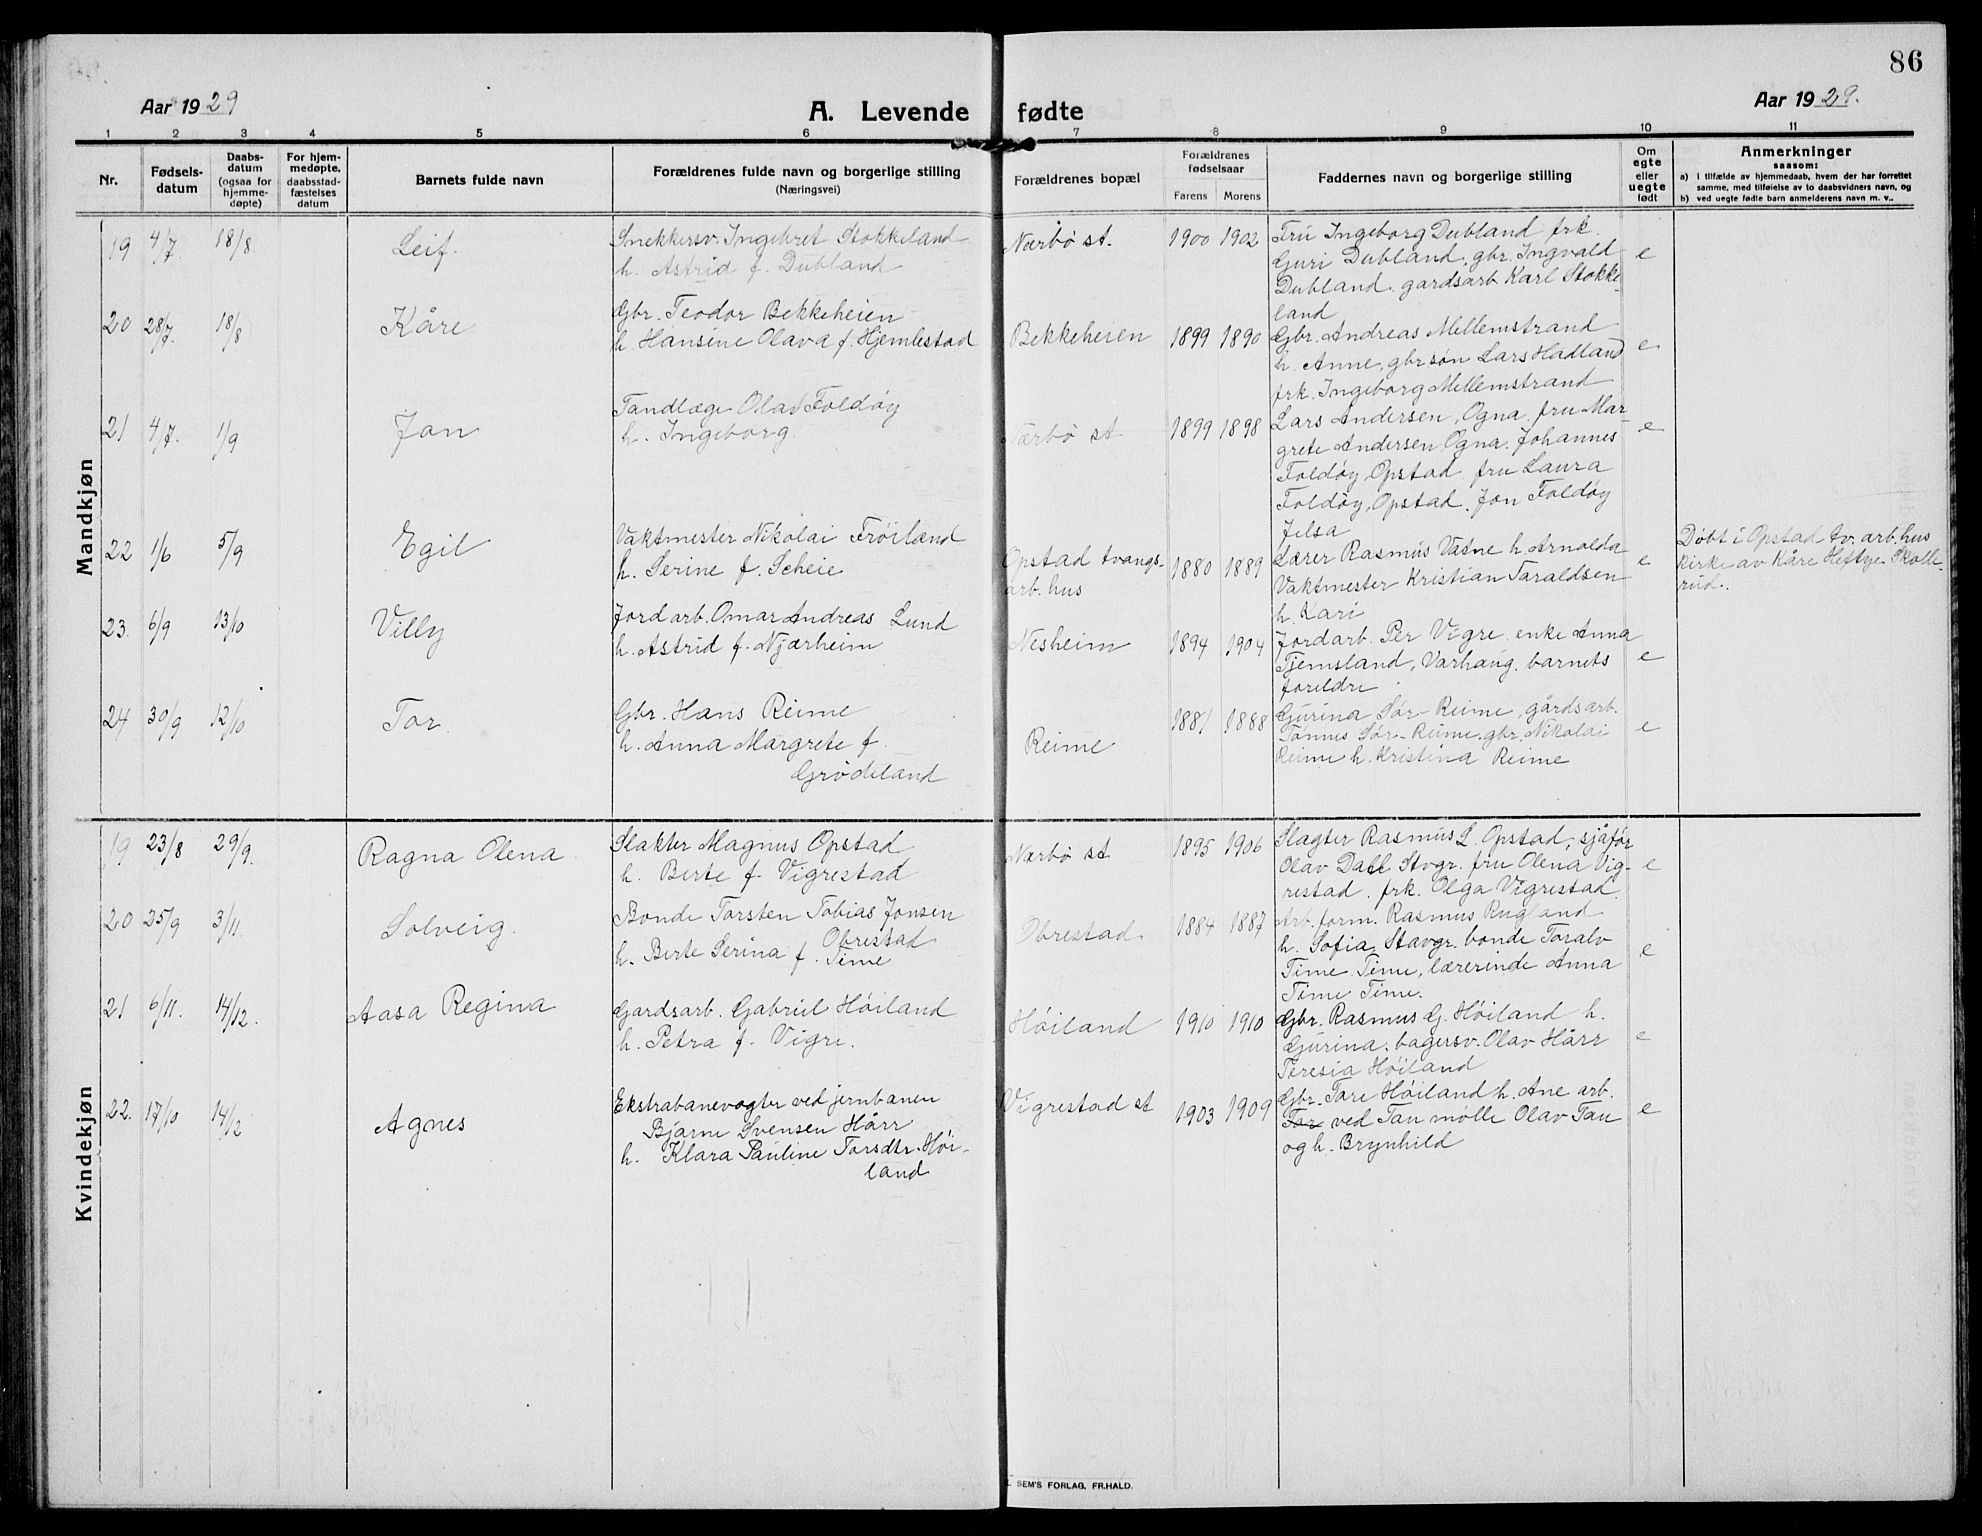 86
Aar 1929
A. Levende fødte
Aar 1929.
1 2 3 4 5 6 7 8 9 10 11
Nr.
Fødsels-
datum
Daabs-
datum
(ogsaa for
hjemme-
døpte)
For hjem-
medøpte,
daabsstad-
fæstelses
datum
Barnets fulde navn
Forældrenes fulde navn og borgerlige stilling
(Næringsvei)
Forældrenes bopæl
Forældrenes
fødselsaar
Farens Morens
Faddernes navn og borgerlige stilling
Om
egte
eller
uegte
født
Anmerkninger
saasom:
a) i tilfælde av hjemmedaab, hvem der har forrettet
samme, med tilføielse av to daabsvidners navn, og
b) ved uegte fødte barn anmelderens navn m. v..
Mandkjøn
19 4/7. 18/8 Leif.
Snekkersv. Ingebret Stokkeland
h. Astrid f. Dubland
Nærbø st. 1900 1902
Fru Ingeborg Dubland frk.
Guri Dubland, gbr. Ingvald
Dubland, gardsarb. Karl Stokke-
land
e
20 28/7. 18/8 Kåre
Gbr. Teodor Bekkeheien
h. Hansine Olava f. Hjemlestad
Bekkeheien 1899 1890
Gbr. Andreas Mellemstrand
h. Anne, gbr.søn Lars Hadland
frk. Ingeborg Mellemstrand
e
21 4/7. 1/9 Jon
Tandlæge Olav Foldøy
h. Ingeborg.
Nærbø st 1899 1898
Lars Andersen, Ogna. fru Mar-
grete Andersen, Ogna. Johannes
Foldøy, Opstad fru Laura
Foldøy, Opstad. Jon Foldøy
Jelsa
e
22 1/6 5/9 Egil
Vaktmester Nikolai Frøiland
h. Serine f. Scheie
Opstad tvangs-
arb. hus
1880 1889
Lærer Rasmus Vatne h. Arnolda
Vaktmester Kristian Taraldsen
h. Kari
e
Døbt i Opstad tv. arb. hus
kirke av Kåre Heftye Skolle-
rud.
23. 6/9 13/10 Villy
Jordarb. Omar Andreas Lund
h. Astrid f. Njærheim
Nesheim 1894 1904
Jordarb. Per Vigre. enke Anna
Tjemsland, Varhaug. barnets
foreldre
e
24 30/9 12/10 Tor.
Gbr. Hans Reime
h. Anna Margrete f.
Grødeland
Reime 1881 1888
Gurina Sør-Reime, gårdsarb.
Tønnes Sør-Reime. gbr. Nikolai
Reime h. Kristina Reime
e
Kvindekjøn
19 23/8 29/9. Ragna Olena.
Slakter Magnus Opstad
h. Berte f. Vigrestad
Nærbø st 1895 1906
Slagter Rasmus L. Opstad, sjåfør
Olav Dall Stvgr. fru Olena Vig-
restad. frk. Olga Vigrestad.
e
20 25/9 3/11. Solveig.
Bonde Torsten Tobias Jonsen
Obrestad
h. Berte Serina f. Time
Obrestad. 1884 1887
Arb. form. Rasmus Rugland
h. Sofia, Stavgr. bonde Toralv
Time. Time, lærerinde Anna
Time Time.
e
21 6/11. 14/12. Aasa Regina
Gardsarb. Gabriel Høiland
h. Petra f. Vigre.
Høiland 1910 1910
Gbr. Rasmus G. Høiland h.
Gurina. bagersv. Olav Hårr
Teresia Høiland
e
22. 17/10 14/12 Agnes
Ekstrabanevogter ved jernbanen
Bjarne Svensen Hårr
h. Klara Pauline Torsdtr. Høi-
land
Vigrestad st 1903 1909
Gbr. Tore Høiland h. Ane arb.
ved Tau mølle Olav Tau
og h. Brynhild
e
SEM'S FORLAG, FR.HALD.